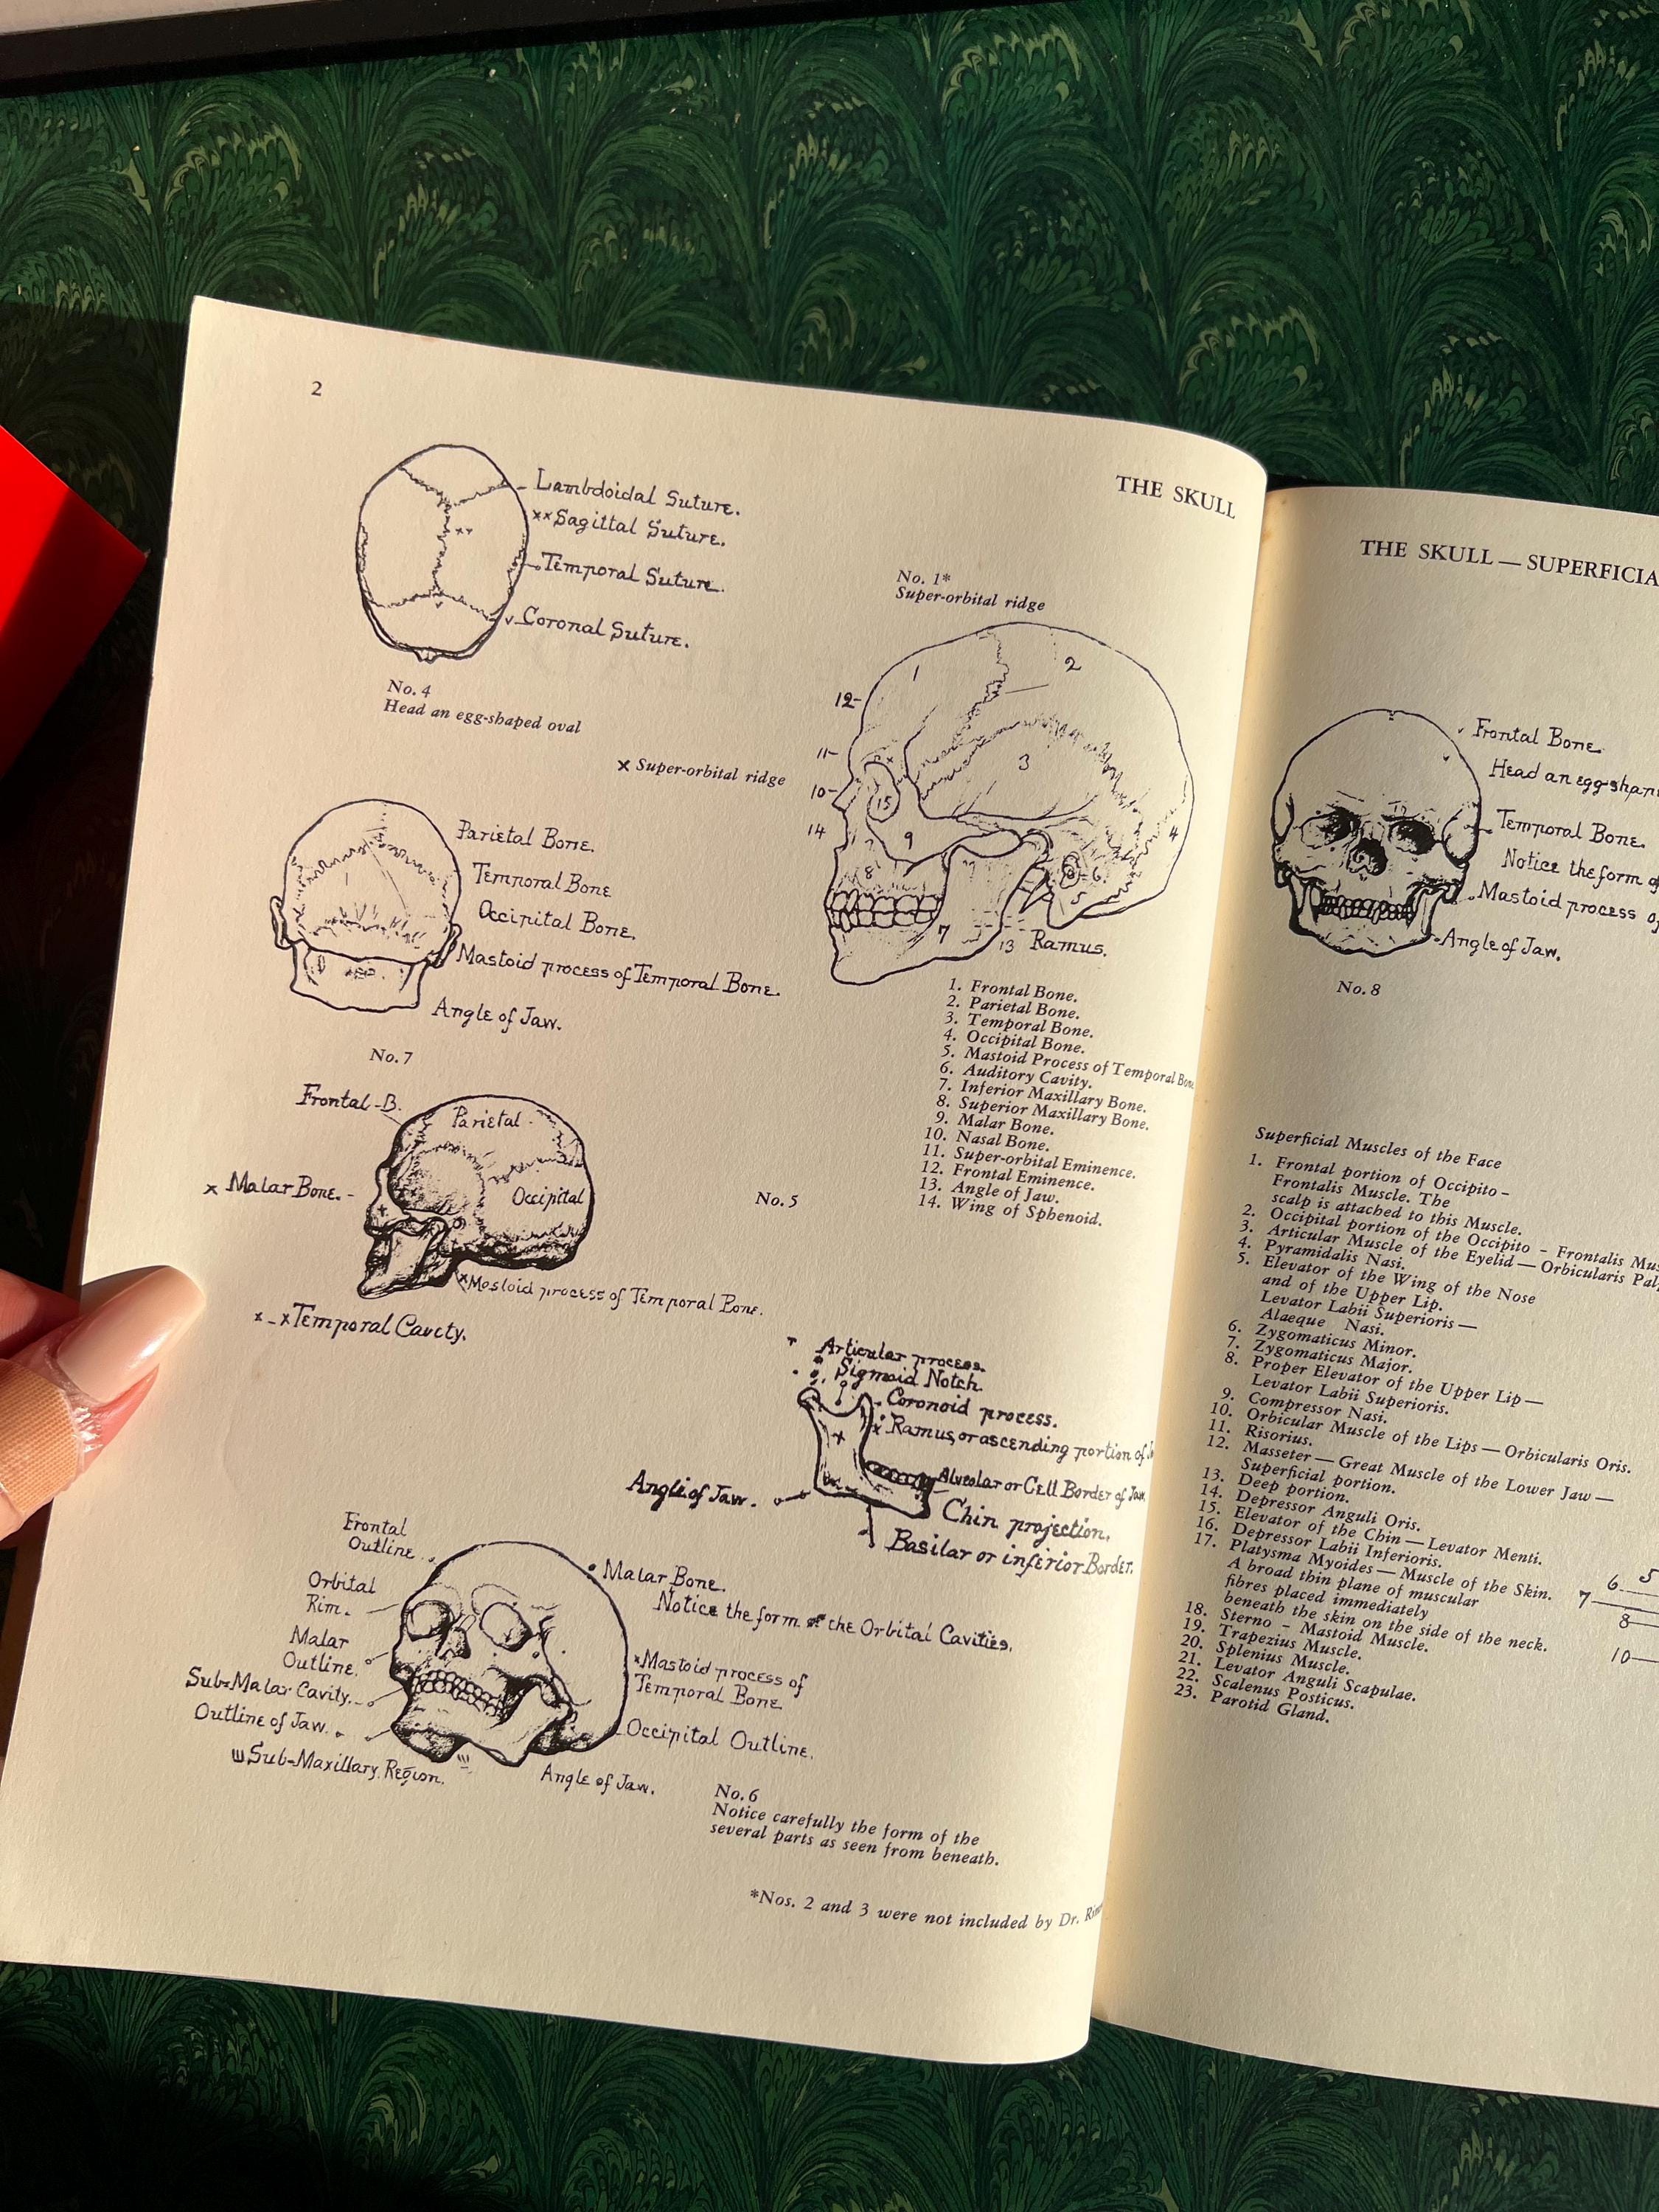 2
THE SKULL
Lambdoidal Suture.
xx Sagittal Suture.
Temporal Suture.
Coronal Suture.
No. 4
Head an egg-shaped oval
No. 1*
Super-orbital ridge
x Super-orbital ridge
1
2
3
4
5
6
7
8
9
10
11
12
13
14
15
Ramus.
Parietal Bone.
Temporal Bone
Occipital Bone.
Mastoid process of Temporal Bone.
Angle of Jaw.
No. 7
1. Frontal Bone.
2. Parietal Bone.
3. Temporal Bone.
4. Occipital Bone.
5. Mastoid Process of Temporal Bone
6. Auditory Cavity.
7. Inferior Maxillary Bone.
8. Superior Maxillary Bone.
9. Malar Bone.
10. Nasal Bone.
11. Super-orbital Eminence.
12. Frontal Eminence.
13. Angle of Jaw.
14. Wing of Sphenoid.
Frontal-B.
Parietal
x Malar Bone.
Occipital
x Mastoid process of Temporal Bone.
x-x Temporal Cavity.
No. 5
Articular process.
Sigmoid Notch.
Coronoid process.
Ramus, or ascending portion of
Alveolar or Cell Border of Jaw.
Angle of Jaw.
Chin projection.
Basilar or inferior Border.
Frontal
Outline
Orbital
Rim.
Malar
Outline.
Sub-Malar Cavity.
Outline of Jaw.
Sub-Maxillary Region.
Malar Bone.
Notice the form of the Orbital Cavities.
x Mastoid process of
Temporal Bone
Occipital Outline.
Angle of Jaw.
No. 6
Notice carefully the form of the
several parts as seen from beneath.
*Nos. 2 and 3 were not included by Dr.
THE SKULL — SUPERFICIA
Frontal Bone.
Head an egg-shap
Temporal Bone.
Notice the form of
Mastoid process of
Angle of Jaw.
No. 8
Superficial Muscles of the Face
1. Frontal portion of Occipito -
Frontalis Muscle. The
scalp is attached to this Muscle.
2. Occipital portion of the Occipito - Frontalis Mus
3. Articular Muscle of the Eyelid — Orbicularis Pal
4. Pyramidalis Nasi.
5. Elevator of the Wing of the Nose
and of the Upper Lip.
Levator Labii Superioris —
Alaeque Nasi.
6. Zygomaticus Minor.
7. Zygomaticus Major.
8. Proper Elevator of the Upper Lip —
Levator Labii Superioris.
9. Compressor Nasi.
10. Orbicular Muscle of the Lips — Orbicularis Oris.
11. Risorius.
12. Masseter — Great Muscle of the Lower Jaw —
Superficial portion.
13. Deep portion.
14. Depressor Anguli Oris.
15. Elevator of the Chin — Levator Menti.
16. Depressor Labii Inferioris.
17. Platysma Myoides — Muscle of the Skin.
A broad thin plane of muscular
fibres placed immediately
beneath the skin on the side of the neck.
18. Sterno - Mastoid Muscle.
19. Trapezius Muscle.
20. Splenius Muscle.
21. Levator Anguli Scapulae.
22. Scalenus Posticus.
23. Parotid Gland.
5
6
7
8
10